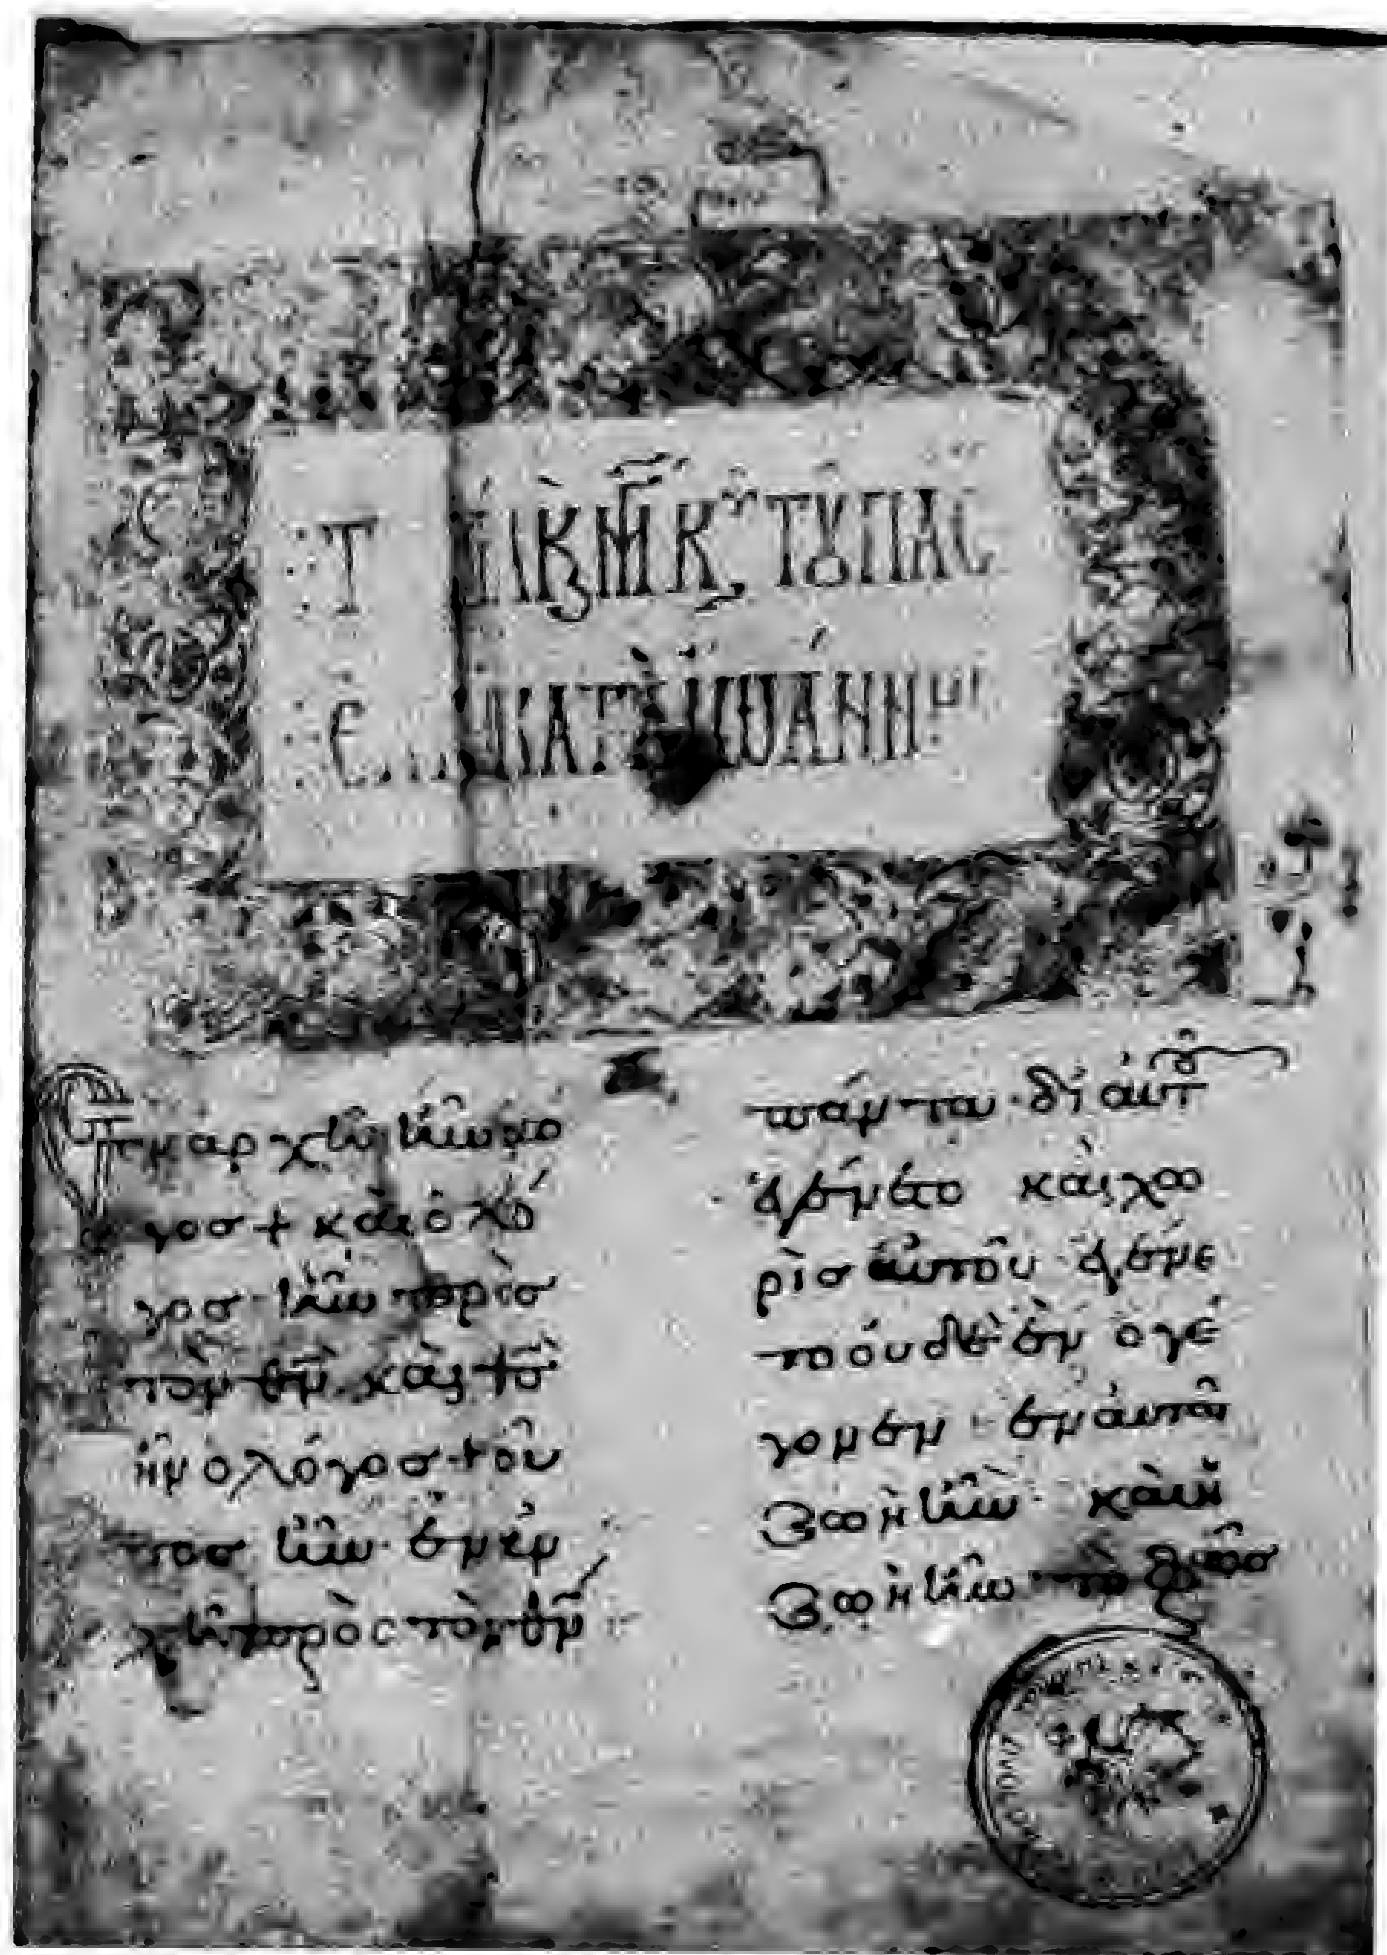 ΤΟΥ ΠΑΣ
ΚΑΤΑ ΙΩΑΝΝΗΝ
Ἐν ἀρχῆ ἦν ὁ λό
γοσ + καὶ ὁ λό
γοσ ἦν πρὸσ
τὸν θν καὶ θσ
ἦν ὁ λόγοσ + οὗ
τοσ ἦν ἐν ἀρ
χῆ πρὸς τὸν θν
πάντα δι αὐτοῦ
ἐγένετο καὶ χω
ρὶσ αὐτοῦ ἐγένε
το οὐδὲ ἓν ὃ γέ
γονεν ἐν αὐτῶ
ζωὴ ἦν καὶ ἡ
ζωὴ ἦν τὸ φῶσ